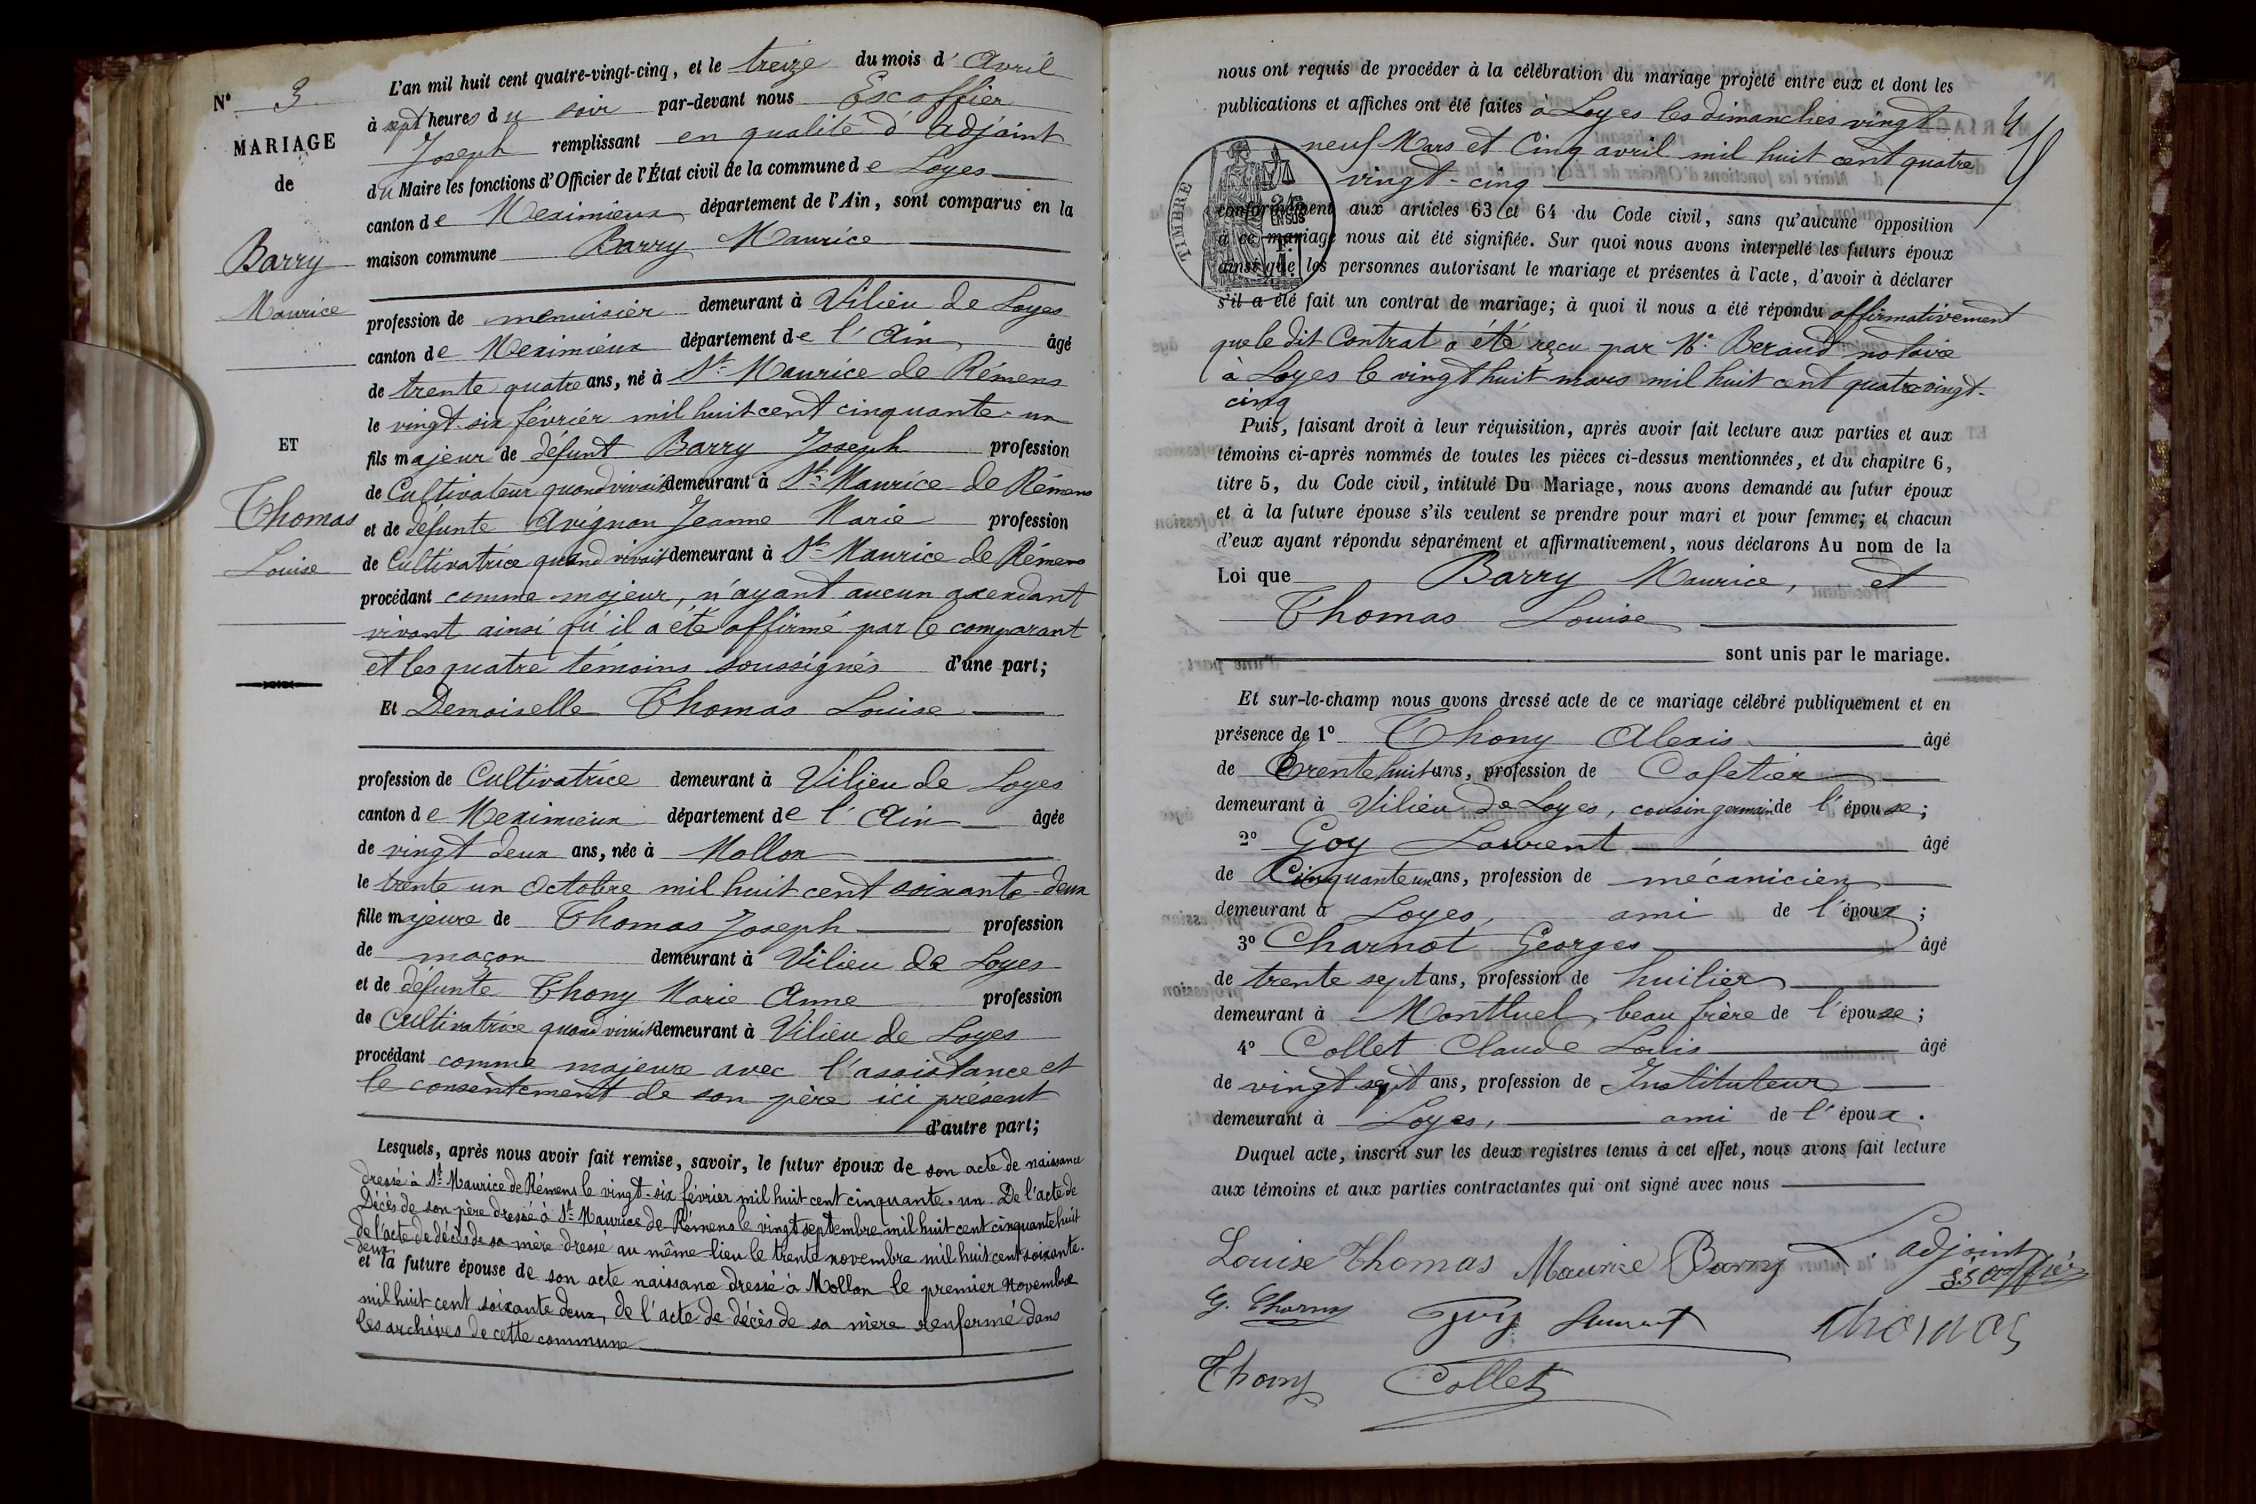 N° 3
MARIAGE
de
Barry
Maurice
ET
Thomas
Louise
L'an mil huit cent quatre-vingt-cinq, et le treize du mois d'Avril
à sept heures du soir par-devant nous Escoffier
Joseph remplissant en qualité d'adjoint
du Maire les fonctions d'Officier de l'État civil de la commune de Loyes
canton de Meximieux département de l'Ain, sont comparus en la
maison commune Barry Maurice
profession de menuisier demeurant à Vilieu de Loyes
canton de Meximieux département de l'Ain âgé
de trente quatre ans, né à St Maurice de Rémens
le vingt-six février mil huit cent cinquante-un
fils majeur de défunt Barry Joseph profession
de Cultivateur quand vivait demeurant à St Maurice de Rémens
et de défunte Avignon Jeanne Marie profession
de Cultivatrice quand vivait demeurant à St Maurice de Rémens
procédant comme majeur, n'ayant aucun axendant
vivant ainsi qu'il a été affirmé par le comparant
et les quatre témoins soussignés d'une part;
Et Demoiselle Thomas Louise
profession de Cultivatrice demeurant à Vilieu de Loyes
canton de Meximieux département de l'Ain âgée
de vingt deux ans, née à Mollon
le trente un Octobre mil huit cent soixante-deux
fille majeure de Thomas Joseph profession
de maçon demeurant à Vilieu de Loyes
et de défunte Thony Marie Anne profession
de Cultivatrice quand vivait demeurant à Vilieu de Loyes
procédant comme majeure avec l'assistance et
le consentement de son père ici présent
d'autre part;
Lesquels, après nous avoir fait remise, savoir, le futur époux de son acte de naissance
dressé à St Maurice de Rémens le vingt-six février mil huit cent cinquante-un. De l'acte de
Décès de son père dressé à St Maurice de Rémens le vingt septembre mil huit cent cinquante huit
de l'acte de décès de sa mère dressé au même lieu le trente novembre mil huit cent soixante-
deux
et la future épouse de son acte naissance dressé à Mollon le premier novembre
mil huit cent soixante deux, de l'acte de décès de sa mère renfermé dans
les archives de cette commune
nous ont requis de procéder à la célébration du mariage projeté entre eux et dont les
publications et affiches ont été faites à Loyes les dimanches vingt-
neuf Mars et Cinq avril mil huit cent quatre
vingt-cinq
TIMBRE
conformément aux articles 63 et 64 du Code civil, sans qu'aucune opposition
à ce mariage nous ait été signifiée. Sur quoi nous avons interpellé les futurs époux
ainsi que les personnes autorisant le mariage et présentes à l'acte, d'avoir à déclarer
s'il a été fait un contrat de mariage; à quoi il nous a été répondu affirmativement
que le dit Contrat a été reçu par Me Beraud notaire
à Loyes le vingt huit mars mil huit cent quatre vingt-
cinq
Puis, faisant droit à leur réquisition, après avoir fait lecture aux parties et aux
témoins ci-après nommés de toutes les pièces ci-dessus mentionnées, et du chapitre 6,
titre 5, du Code civil, intitulé Du Mariage, nous avons demandé au futur époux
et à la future épouse s'ils veulent se prendre pour mari et pour femme; et chacun
d'eux ayant répondu séparément et affirmativement, nous déclarons Au nom de la
Loi que Barry Maurice, et
Thomas Louise
sont unis par le mariage.
Et sur-le-champ nous avons dressé acte de ce mariage célébré publiquement et en
présence de 1° Thony Alexis âgé
de trente huit ans, profession de Cafetier
demeurant à Vilieu de Loyes, cousin germain de l'épouse;
2° Goy Laurent âgé
de Cinquante un ans, profession de mécanicien
demeurant à Loyes, ami de l'époux;
3° Charnot Georges âgé
de trente sept ans, profession de huilier
demeurant à Montluel, beau frère de l'épouse;
4° Collet Claude Louis âgé
de vingt sept ans, profession de Instituteur
demeurant à Loyes, ami de l'époux.
Duquel acte, inscrit sur les deux registres tenus à cet effet, nous avons fait lecture
aux témoins et aux parties contractantes qui ont signé avec nous
Louise Thomas Maurice Barry L'adjoint
Escoffier
Goy Laurent Thomas
Thony Collet